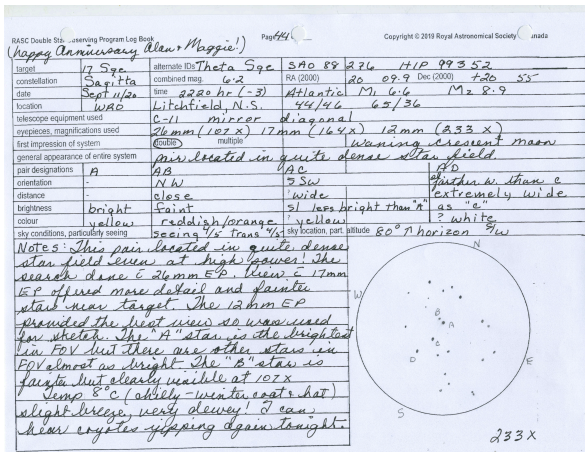 RASC Double Star Observing Program Log Book Page 44 Copyright © 2019 Royal Astronomical Society Canada
(happy Anniversary Alan & Maggie!)
target 17 Sge alternate IDs Theta Sge SAO 88276 HIP 99352
constellation Sagitta combined mag. 6.2 RA (2000) 20 09.9 Dec (2000) +20 55
date Sept 11/20 time 2220 hr (-3) Atlantic M1 6.6 M2 8.9
location WRO Litchfield, N.S. 44/46 65/36
telescope equipment used C-11 mirror diagonal
eyepieces, magnifications used 26mm (107 x) 17mm (164x) 12mm (233 x)
first impression of system double multiple waning crescent moon
general appearance of entire system pair located in quite dense star field
pair designations A AB AC AD
orientation - NW SSW farther w. than c
distance - close wide extremely wide
brightness bright faint sl less bright than "A" as "C"
colour yellow reddish/orange ? yellow ? white
sky conditions, particularly seeing seeing 4/5 trans 4/5 sky location, part. altitude 80° ↑ horizon S/W
Notes: This pair located in quite dense
star field even at high power! The
search done c̄ 26mm EP. View c̄ 17mm
EP offered more detail and fainter
stars near target. The 12mm EP
provided the best view so was used
for sketch. The "A" star is the brightest
in FOV but there are other stars in
FOV almost as bright. The "B" star is
fainter but clearly visible at 107x
Temp 8°C (chilly - winter coat & hat)
slight breeze, very dewey! I can
hear coyotes yipping again tonight.
N
W
B
A
C
D
E
S
233X